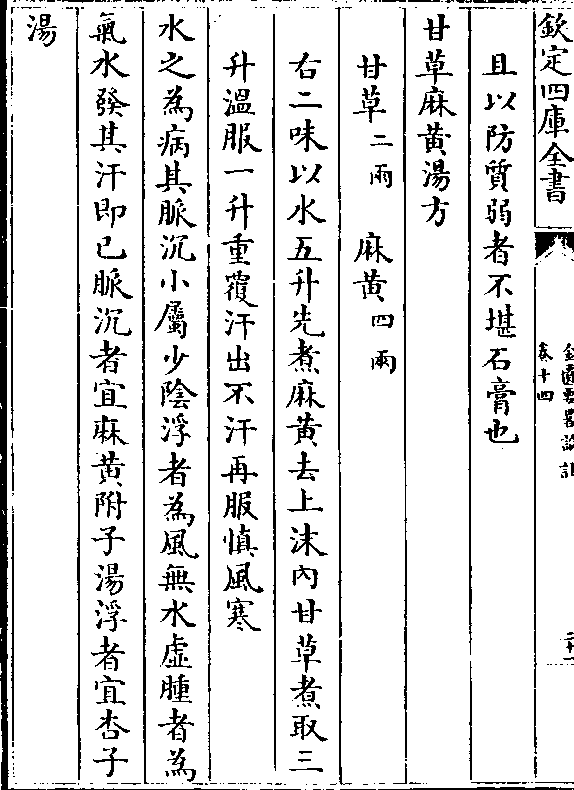 欽定四庫全書
金匱要畧論註
卷十四
且以防質弱者不堪石膏也
甘草麻黄湯方
甘草二兩　麻黄四兩
右二味以水五升先煮麻黄去上沫内甘草煮取三
升溫服一升重覆汗出不汗再服慎風寒
水之為病其脈沉小屬少陰浮者為風無水虛腫者為
氣水發其汗即已脈沉者宜麻黄附子湯浮者宜杏子
湯